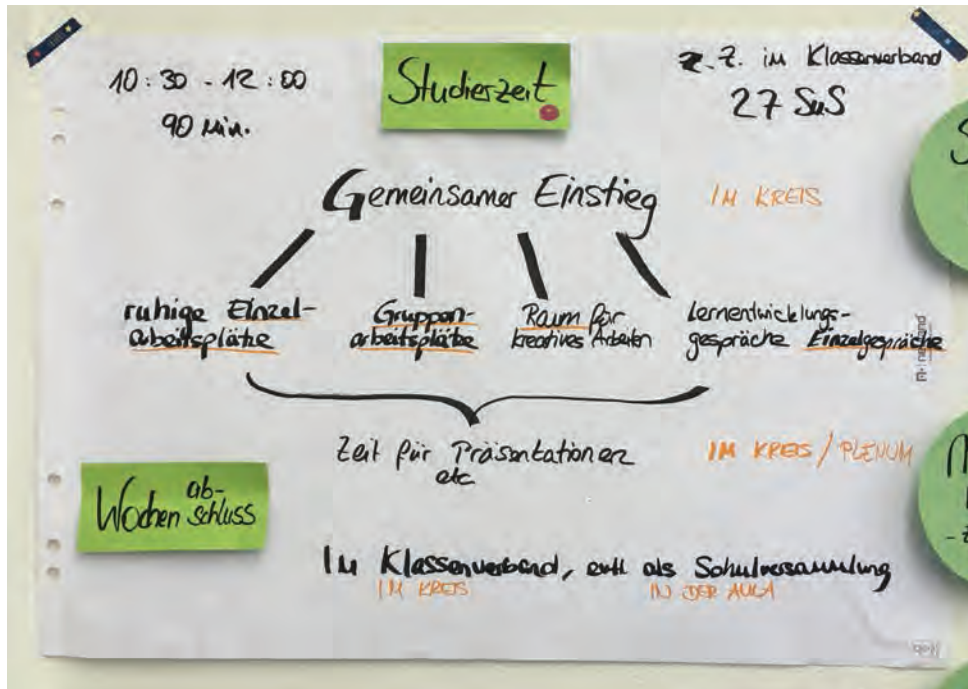 10:30 - 12:00
90 Min.
Studierzeit
z.Z. im Klassenverband
27 SuS
Gemeinsamer Einstieg
IM KREIS
ruhige Einzel-
arbeitsplätze
Gruppen-
arbeitsplätze
Raum für
kreatives Arbeiten
Lernentwicklungs-
gespräche Einzelgespräche
Zeit für Präsentationen
etc
IM KREIS / PLENUM
Wochen ab-
schluss
Im Klassenverband, evtl als Schulversammlung
IM KREIS
IN DER AULA
S
M